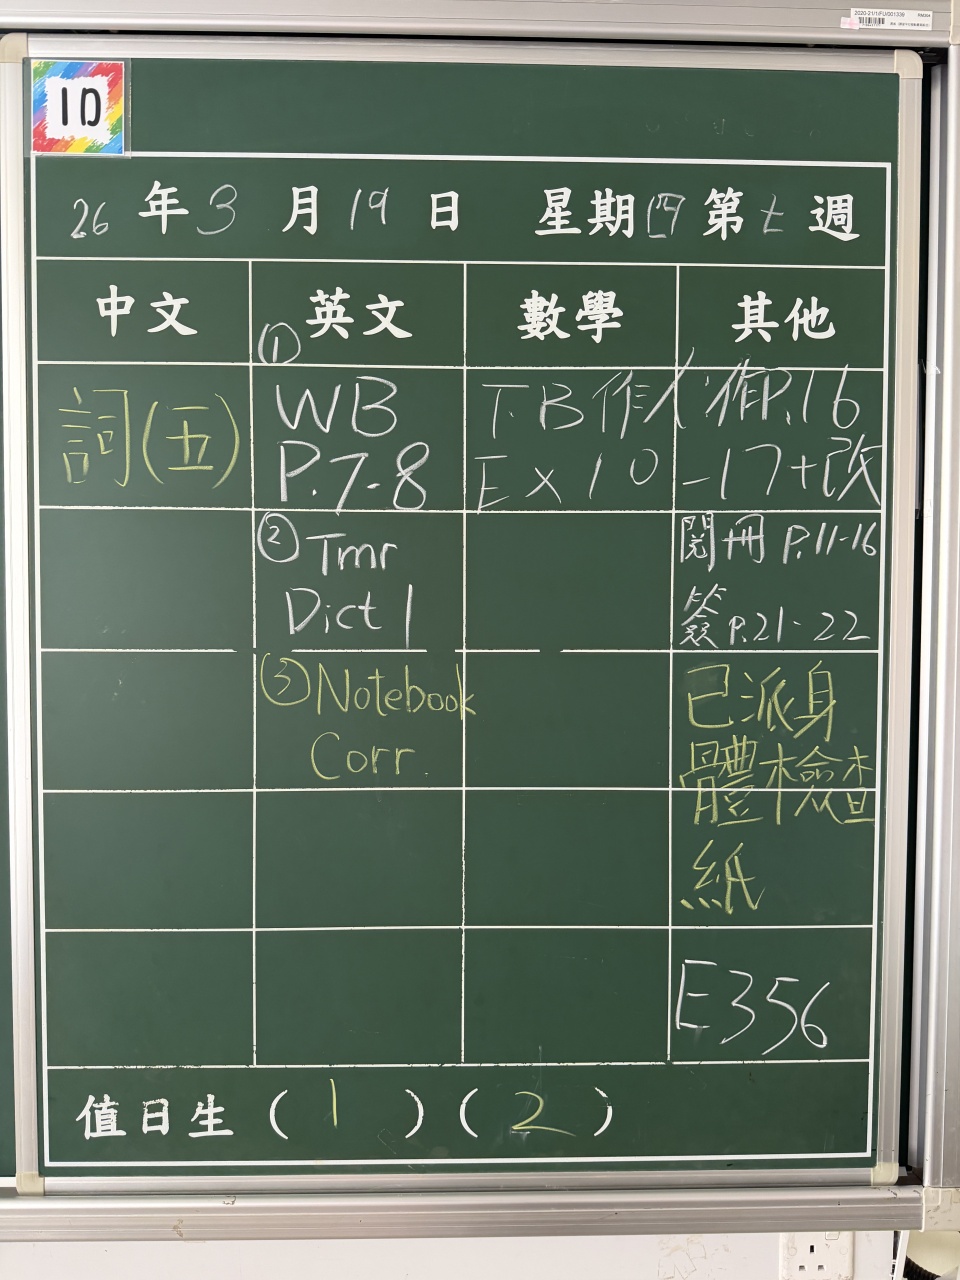 2020-21/1/FU/001339
1D
26年3月19日 星期四第七週
中文 英文 數學 其他
詞(五)
①
WB
P.7-8
TB作
Ex10
P.16
-17+改
②Tmr
Dict 1
閱冊 P.11-16
簽P.21-22
③Notebook
Corr.
已派身
體檢查
紙
E356
值日生(1)(2)